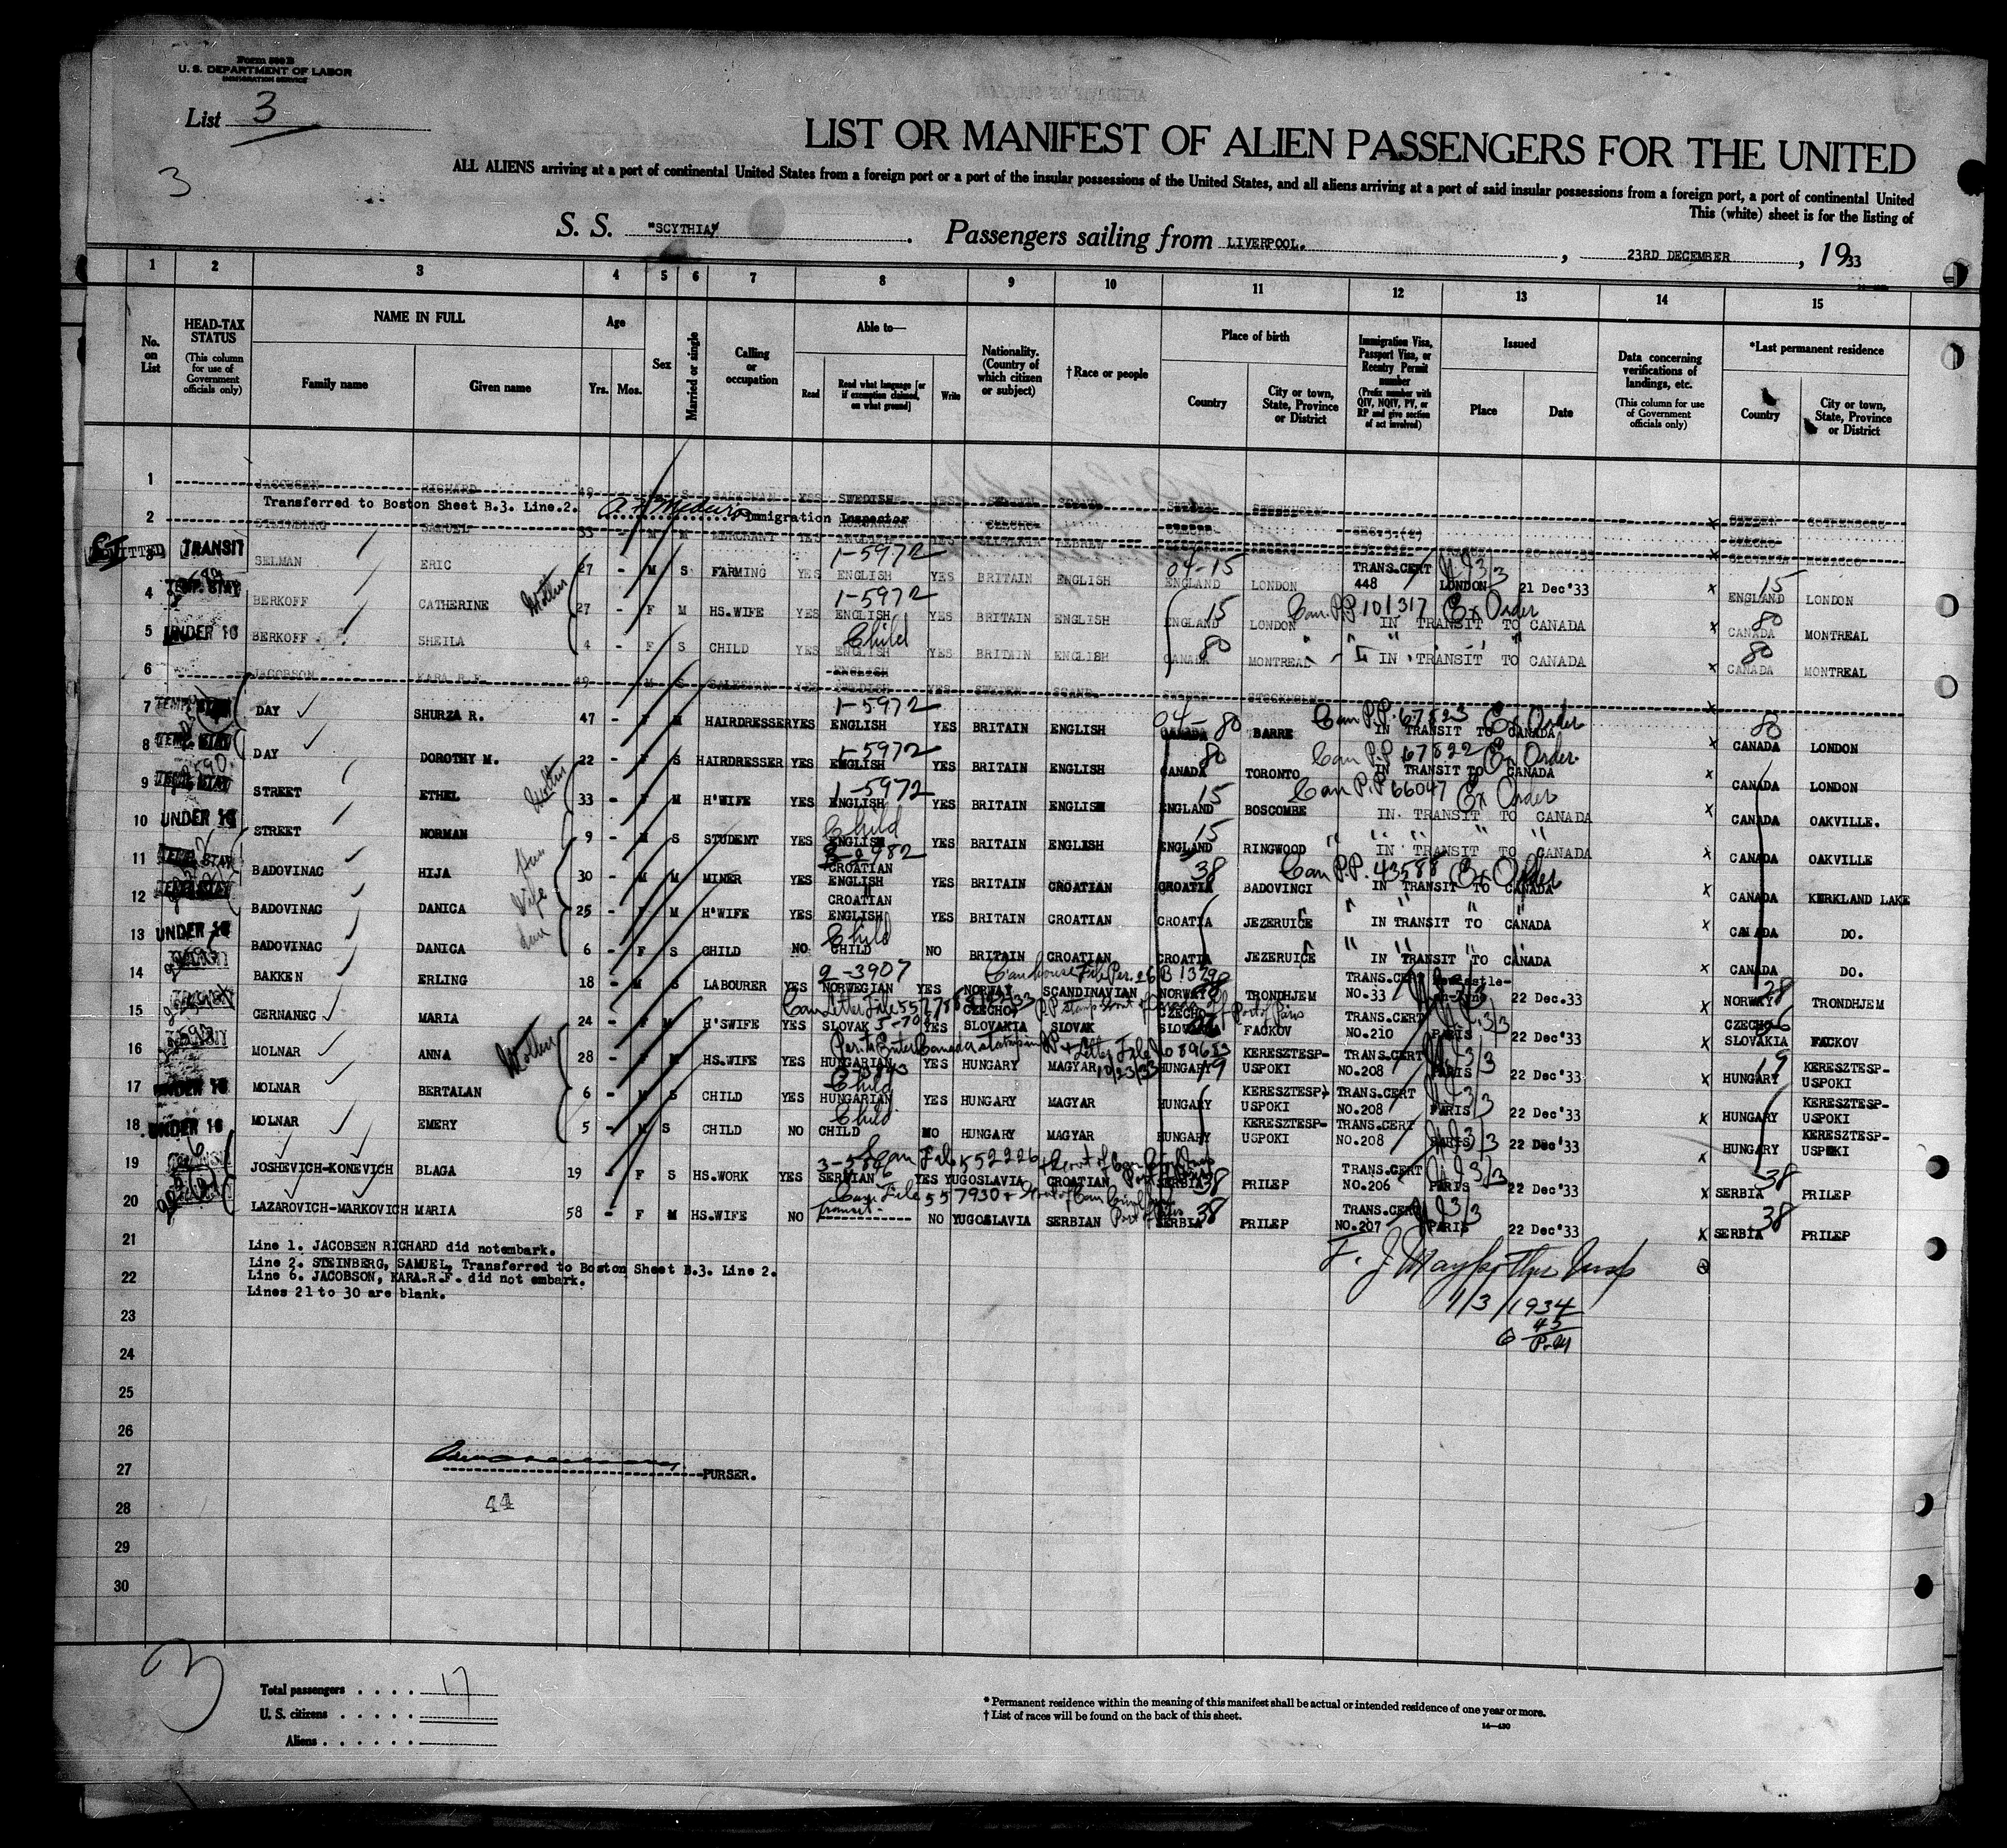 Form 500 B
U. S. DEPARTMENT OF LABOR
IMMIGRATION SERVICE
List 3
3
LIST OR MANIFEST OF ALIEN PASSENGERS FOR THE UNITED
ALL ALIENS arriving at a port of continental United States from a foreign port or a port of the insular possessions of the United States, and all aliens arriving at a port of said insular possessions from a foreign port, a port of continental United
This (white) sheet is for the listing of
S. S. "SCYTHIA" . Passengers sailing from LIVERPOOL. , 23RD DECEMBER , 1933
1 2 3 4 5 6 7 8 9 10 11 12 13 14 15
No. on List
HEAD-TAX STATUS (This column for use of Government officials only)
NAME IN FULL Family name Given name
Age Yrs. Mos.
Sex
Married or single
Calling or occupation
Able to— Read Read what language [or if exemption claimed, on what ground] Write
Nationality. (Country of which citizen or subject)
†Race or people
Place of birth Country City or town, State, Province or District
Immigration Visa, Passport Visa, or Reentry Permit number (Prefix number with QIV, NQIV, PV, or RP and give section of act involved)
Issued Place Date
Data concerning verifications of landings, etc. (This column for use of Government officials only)
*Last permanent residence Country City or town, State, Province or District
1 JACOBSEN RICHARD 49 S SALESMAN YES SWEDISH YES SWEDEN SCAND. SWEDEN STOCKHOLM SWEDEN GOTHENBURG
Transferred to Boston Sheet B.3. Line.2. Immigration Inspector
2 STEINBERG SAMUEL 33 M M MERCHANT YES YES CZECHO-SLOVAKIA HEBREW x CZECHO-SLOVAKIA
ADMITTED 3 TRANSIT SELMAN ERIC 27 - M S FARMING YES 1-5972 ENGLISH YES BRITAIN ENGLISH 04-15 ENGLAND LONDON TRANS.CERT 448 LONDON 21 Dec'33 x 15 ENGLAND LONDON
4 TEMP. STAY BERKOFF CATHERINE Mother 27 - F M HS.WIFE YES 1-5972 ENGLISH YES BRITAIN ENGLISH 15 ENGLAND LONDON Can P.P 101317 Ex Order IN TRANSIT TO CANADA x 80 CANADA MONTREAL
5 UNDER 16 BERKOFF SHEILA 4 - F S CHILD YES Child ENGLISH YES BRITAIN ENGLISH 80 CANADA MONTREAL " " IN TRANSIT TO CANADA x 80 CANADA MONTREAL
6 JACOBSON KARA R.F. 49 M S SALESMAN YES ENGLISH SWEDISH YES SWEDEN SCAND. SWEDEN STOCKHOLM x
7 TEMP. STAY DAY SHURZA R. 47 - F M HAIRDRESSER YES 1-5972 ENGLISH YES BRITAIN ENGLISH 04-80 CANADA BARRE Can P.P. 67823 Ex Order IN TRANSIT TO CANADA x 80 CANADA LONDON
8 TEMP. STAY DAY DOROTHY M. 22 - F S HAIRDRESSER YES 1-5972 ENGLISH YES BRITAIN ENGLISH 80 CANADA TORONTO Can P.P 67822 Ex Order. IN TRANSIT TO CANADA x CANADA LONDON
9 TEMP. STAY STREET ETHEL Mother 33 - F M H'WIFE YES 1-5972 ENGLISH YES BRITAIN ENGLISH 15 ENGLAND BOSCOMBE Can P.P 66047 Ex Order IN TRANSIT TO CANADA x CANADA OAKVILLE.
10 UNDER 16 STREET NORMAN 9 - M S STUDENT YES Child ENGLISH YES BRITAIN ENGLISH 15 ENGLAND RINGWOOD " " " " " IN TRANSIT TO CANADA x CANADA OAKVILLE
11 TEMP. STAY BADOVINAC HIJA 30 - M M MINER YES CROATIAN ENGLISH YES BRITAIN CROATIAN 38 CROATIA BADOVINCI Can P.P. 43588 Ex Order IN TRANSIT TO CANADA x CANADA KERKLAND LAKE
12 TEMP. STAY BADOVINAC DANICA Wife 25 - F M H'WIFE YES " CROATIAN ENGLISH YES BRITAIN CROATIAN CROATIA JEZERUICE " " " " IN TRANSIT TO CANADA x CANADA DO.
13 UNDER 16 BADOVINAC DANICA 6 - F S CHILD NO Child CHILD NO BRITAIN CROATIAN CROATIA JEZERUICE " " " " " IN TRANSIT TO CANADA x CANADA DO.
14 BAKKEN ERLING 18 - M S LABOURER YES 2-3907 NORWEGIAN YES NORWAY SCANDINAVIAN NORWAY TRONDHJEM TRANS.CERT NO.33 Newcastle-on-Tyne 22 Dec.33 x 28 NORWAY TRONDHJEM
15 CERNANEC MARIA 24 - F M H'SWIFE YES SLOVAK YES CZECHO SLOVAKIA SLOVAK CZECHO SLOVAKIA FACKOV TRANS.CERT NO.210 PARIS 22 Dec'33 x CZECHO SLOVAKIA FACKOV
16 MOLNAR ANNA Mother 28 - F M HS.WIFE YES HUNGARIAN YES HUNGARY MAGYAR 10/23/33 HUNGARY 19 KERESZTESP-USPOKI TRANS.CERT NO.208 PARIS 22 Dec'33 x 19 HUNGARY KERESZTESP-USPOKI
17 UNDER 16 MOLNAR BERTALAN 6 - M S CHILD YES Child HUNGARIAN YES HUNGARY MAGYAR HUNGARY KERESZTESP-USPOKI TRANS.CERT NO.208 PARIS 22 Dec'33 x HUNGARY KERESZTESP-USPOKI
18 UNDER 16 MOLNAR EMERY 5 - M S CHILD NO Child. CHILD NO HUNGARY MAGYAR HUNGARY KERESZTESP-USPOKI TRANS.CERT NO.208 PARIS 22 Dec'33 x HUNGARY KERESZTESP-USPOKI
19 JOSHEVICH-KONEVICH BLAGA 19 - F S HS.WORK YES Can File 552226 SERBIAN YES YUGOSLAVIA CROATIAN SERBIA 38 PRILEP TRANS.CERT NO.206 PARIS 22 Dec'33 x 38 SERBIA PRILEP
20 LAZAROVICH-MARKOVICH MARIA 58 - F M HS.WIFE NO Can File 557930 NO YUGOSLAVIA SERBIAN SERBIA 38 PRILEP TRANS.CERT NO.207 PARIS 22 Dec'33 x 38 SERBIA PRILEP
21 Line 1. JACOBSEN RICHARD did notembark.
Line 2. STEINBERG, SAMUEL, Transferred to Boston Sheet B.3. Line 2.
22 Line 6. JACOBSON, KARA.R.F. did not embark.
Lines 21 to 30 are blank.
1/3/1934
23
45
24
25
26
27 PURSER.
28 44
29
30
3
Total passengers . . . . 17
U. S. citizens . . . . .
Aliens . . . . . .
* Permanent residence within the meaning of this manifest shall be actual or intended residence of one year or more.
† List of races will be found on the back of this sheet.
14—430